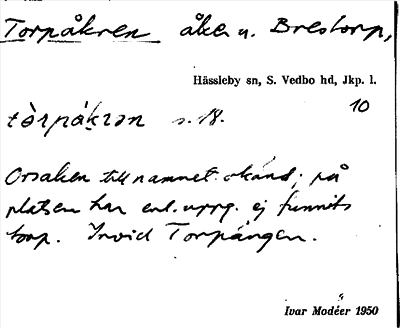 Torpåkren åker u. Brestorp,
Hässleby sn, S. Vedbo hd, Jkp. l.
10
tòrpákrən s. 18.
Orsaken till namnet okänd; på
platsen har enl. uppg. ej funnits
torp. Invid Torpängen.
Ivar Modéer 1950